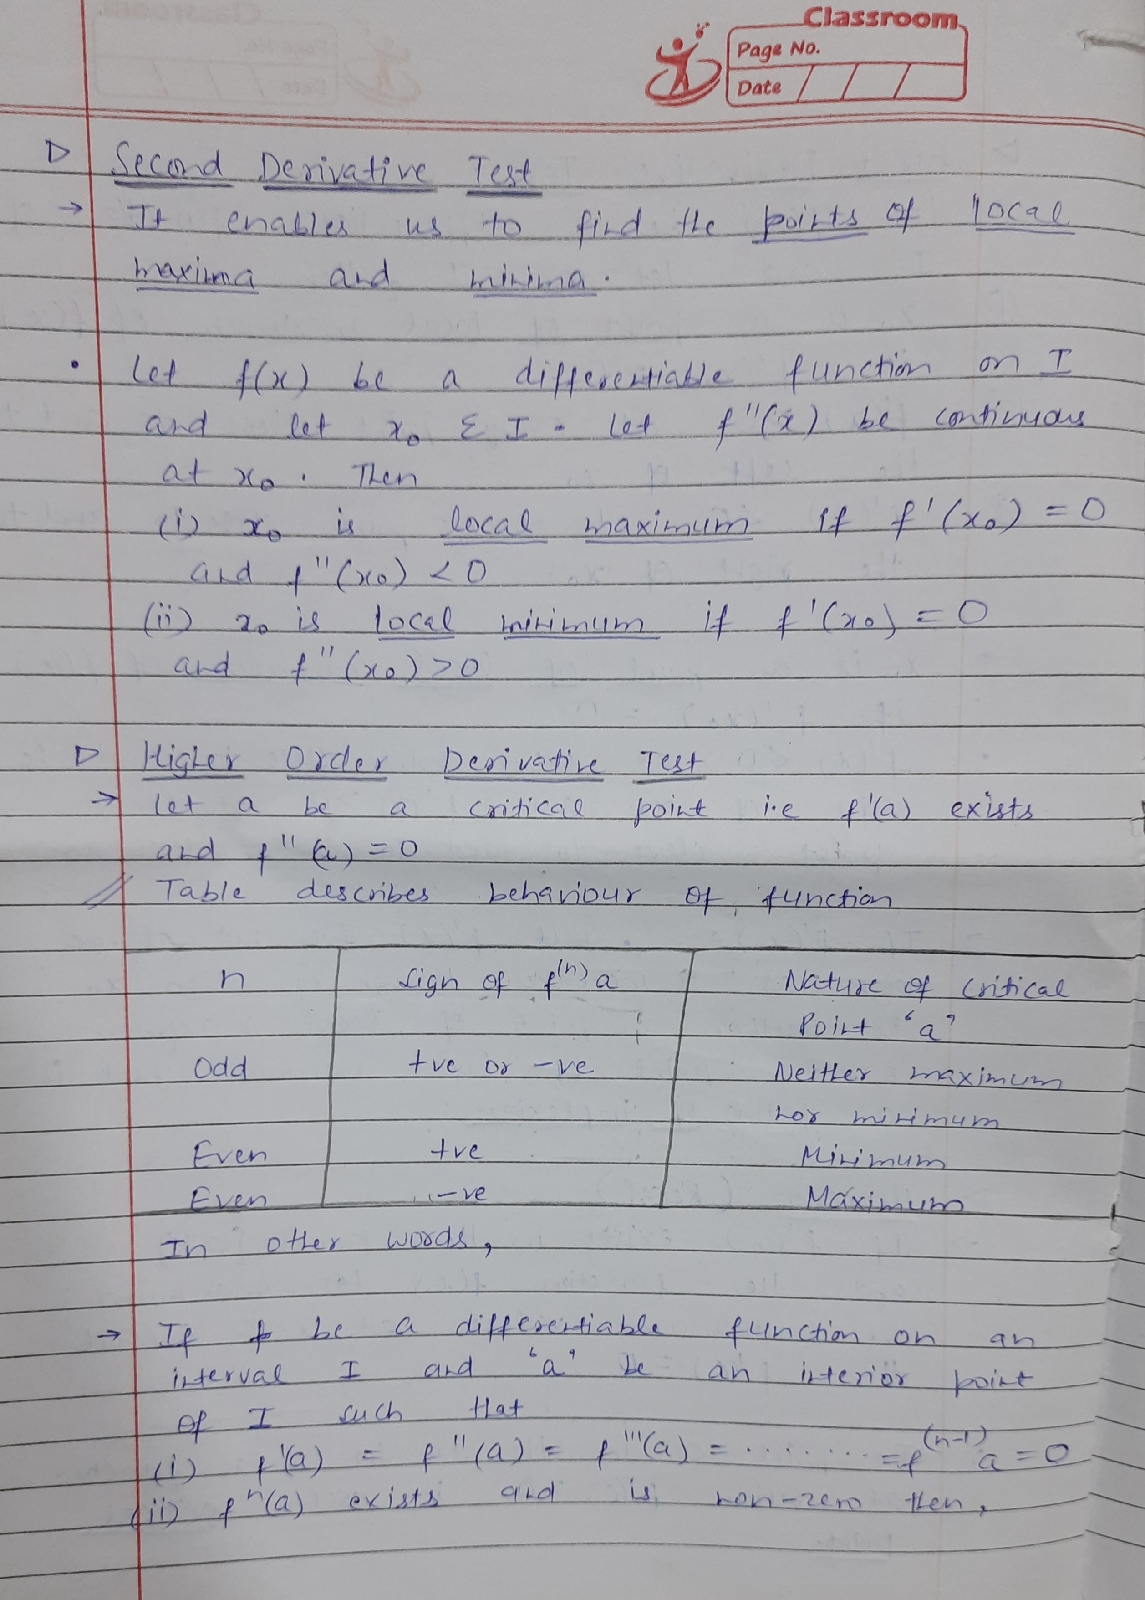 Classroom
Page No.
Date / / /
▷ Second Derivative Test
→ It enables us to find the points of local
maxima and minima.
• Let f(x) be a differentiable function on I
and let x₀ Ɛ I. Let f''(x) be continuous
at x₀. Then
(i) x₀ is local maximum if f'(x₀) = 0
and f''(x₀) < 0
(ii) x₀ is local minimum if f'(x₀) = 0
and f''(x₀) > 0
▷ Higher Order Derivative Test
→ Let a be a critical point i.e f'(a) exists
and f''(a) = 0
// Table describes behaviour of function
n Sign of f⁽ⁿ⁾a Nature of critical
Point 'a'
Odd +ve or -ve Neither maximum
nor minimum
Even +ve Minimum
Even -ve Maximum
In other words,
→ If f be a differentiable function on an
interval I and 'a' be an interior point
of I such that
(i) f'(a) = f''(a) = f'''(a) = ........ = f⁽ⁿ⁻¹⁾a = 0
(ii) fⁿ(a) exists and is non-zero then,